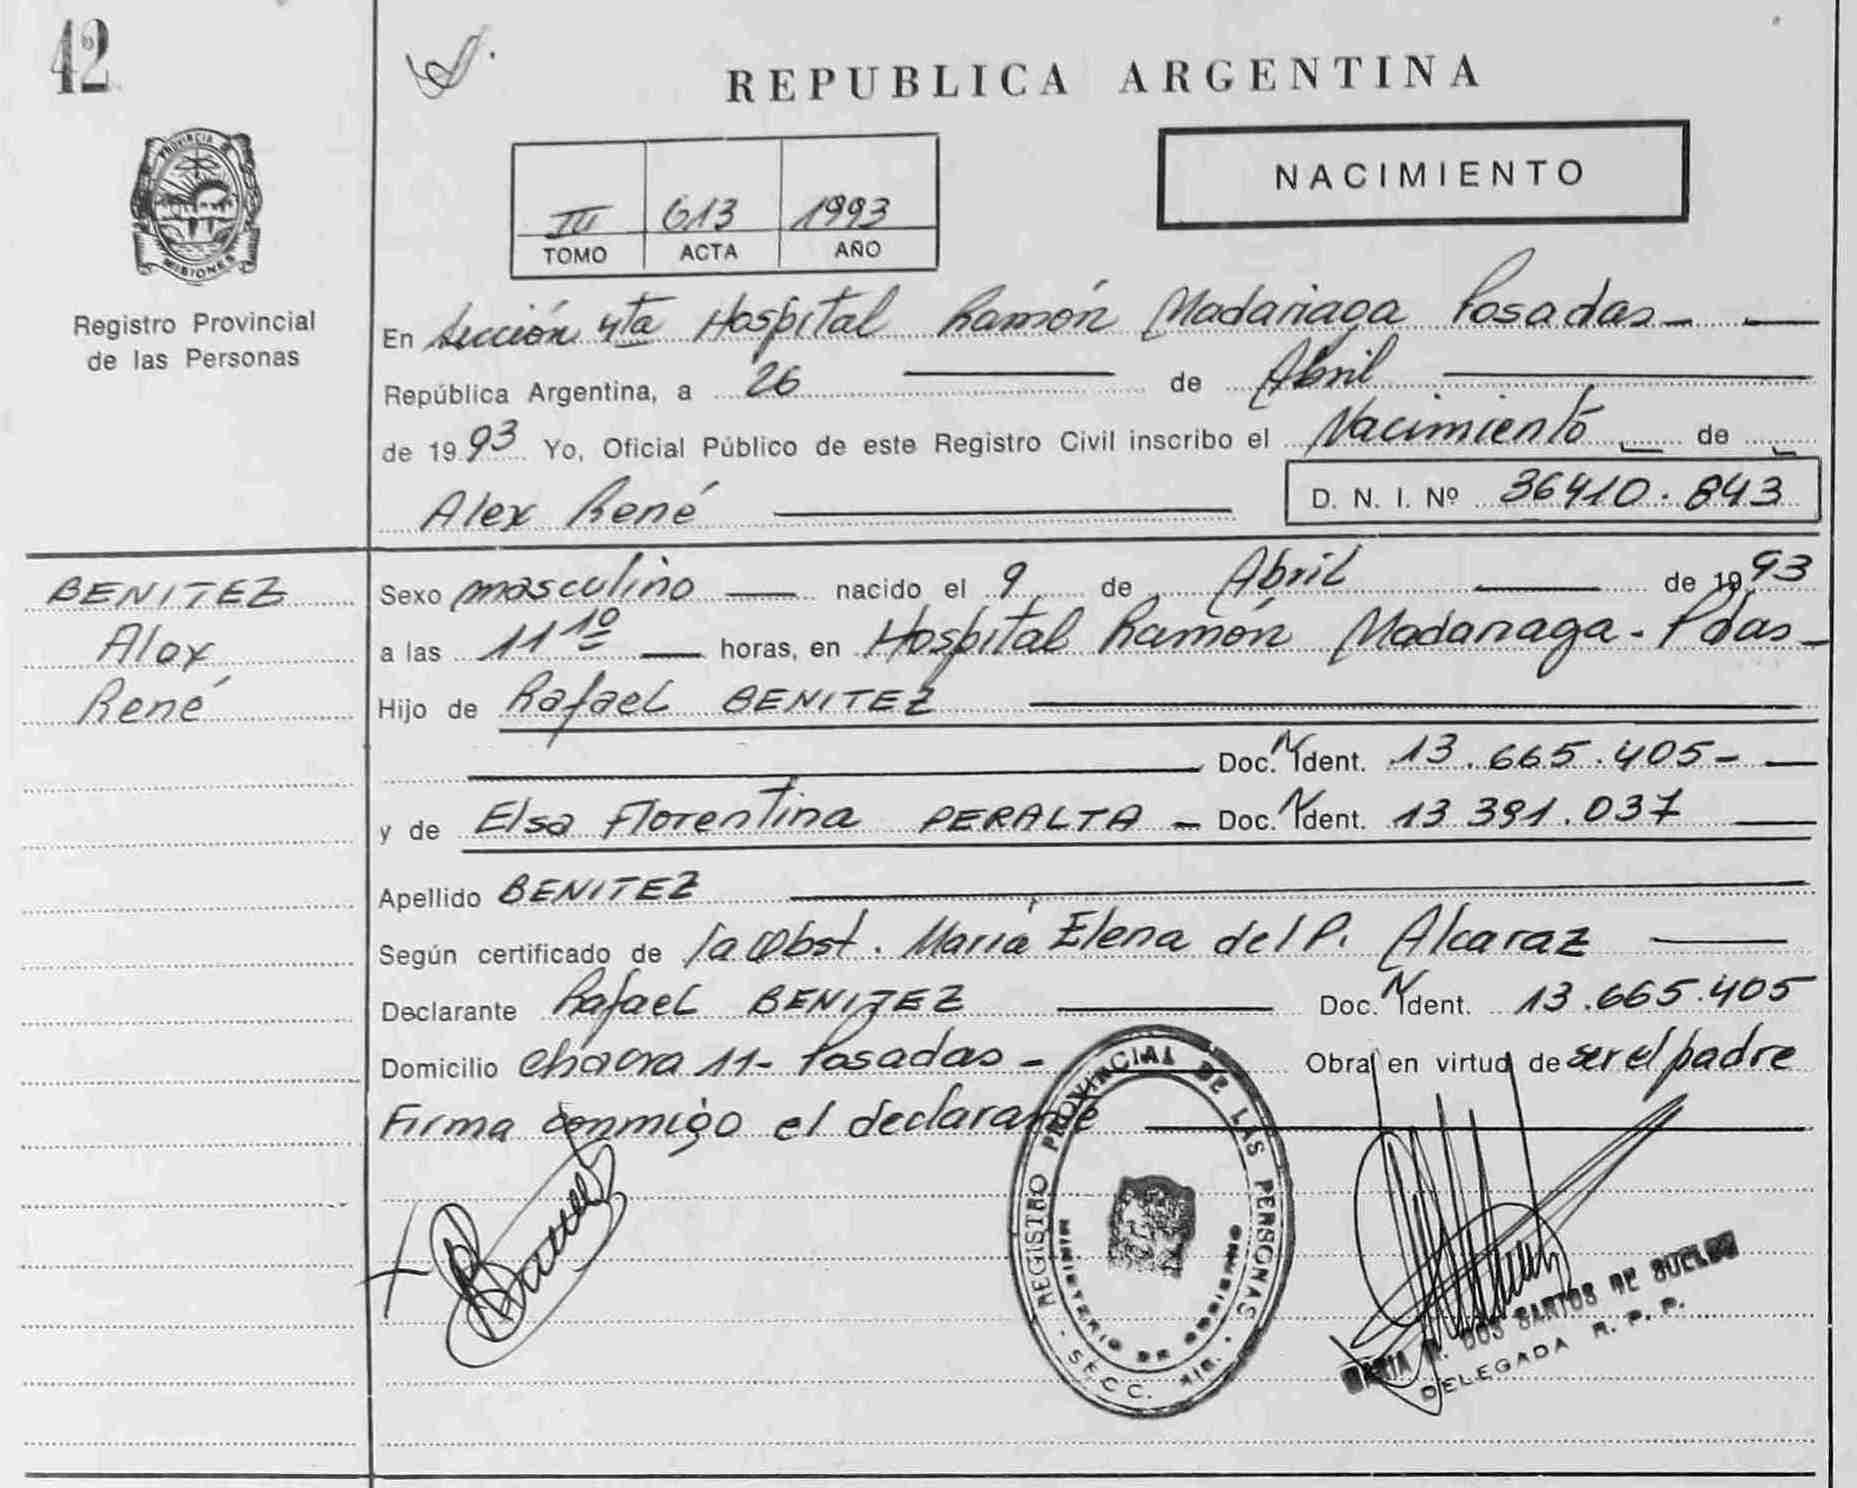 42
REPUBLICA ARGENTINA
PROVINCIA DE
MISIONES
Registro Provincial
de las Personas
III 613 1993
TOMO ACTA AÑO
NACIMIENTO
En Sección 4ta Hospital Ramón Madariaga Posadas -
República Argentina, a 26 de Abril
de 1993 Yo, Oficial Público de este Registro Civil inscribo el Nacimiento de
Alex René
D. N. I. Nº 36410.843
BENITEZ
Alex
René
Sexo masculino nacido el 9 de Abril de 1993
a las 11 10 horas, en Hospital Ramón Madariaga - Pdas -
Hijo de Rafael BENITEZ
Doc. N Ident. 13.665.405 -
y de Elsa Florentina PERALTA - Doc. N Ident. 13 391.037
Apellido BENITEZ
Según certificado de la Obst. María Elena del P. Alcaraz
Declarante Rafael BENITEZ Doc. N Ident. 13.665.405
Domicilio Chacra 11 - Posadas - Obra en virtud de ser el padre
Firma conmigo el declarante
REGISTRO PROVINCIAL DE LAS PERSONAS
MINISTERIO DE GOBIERNO
SECC.
DOS SANTOS DE
DELEGADA R. P. P.